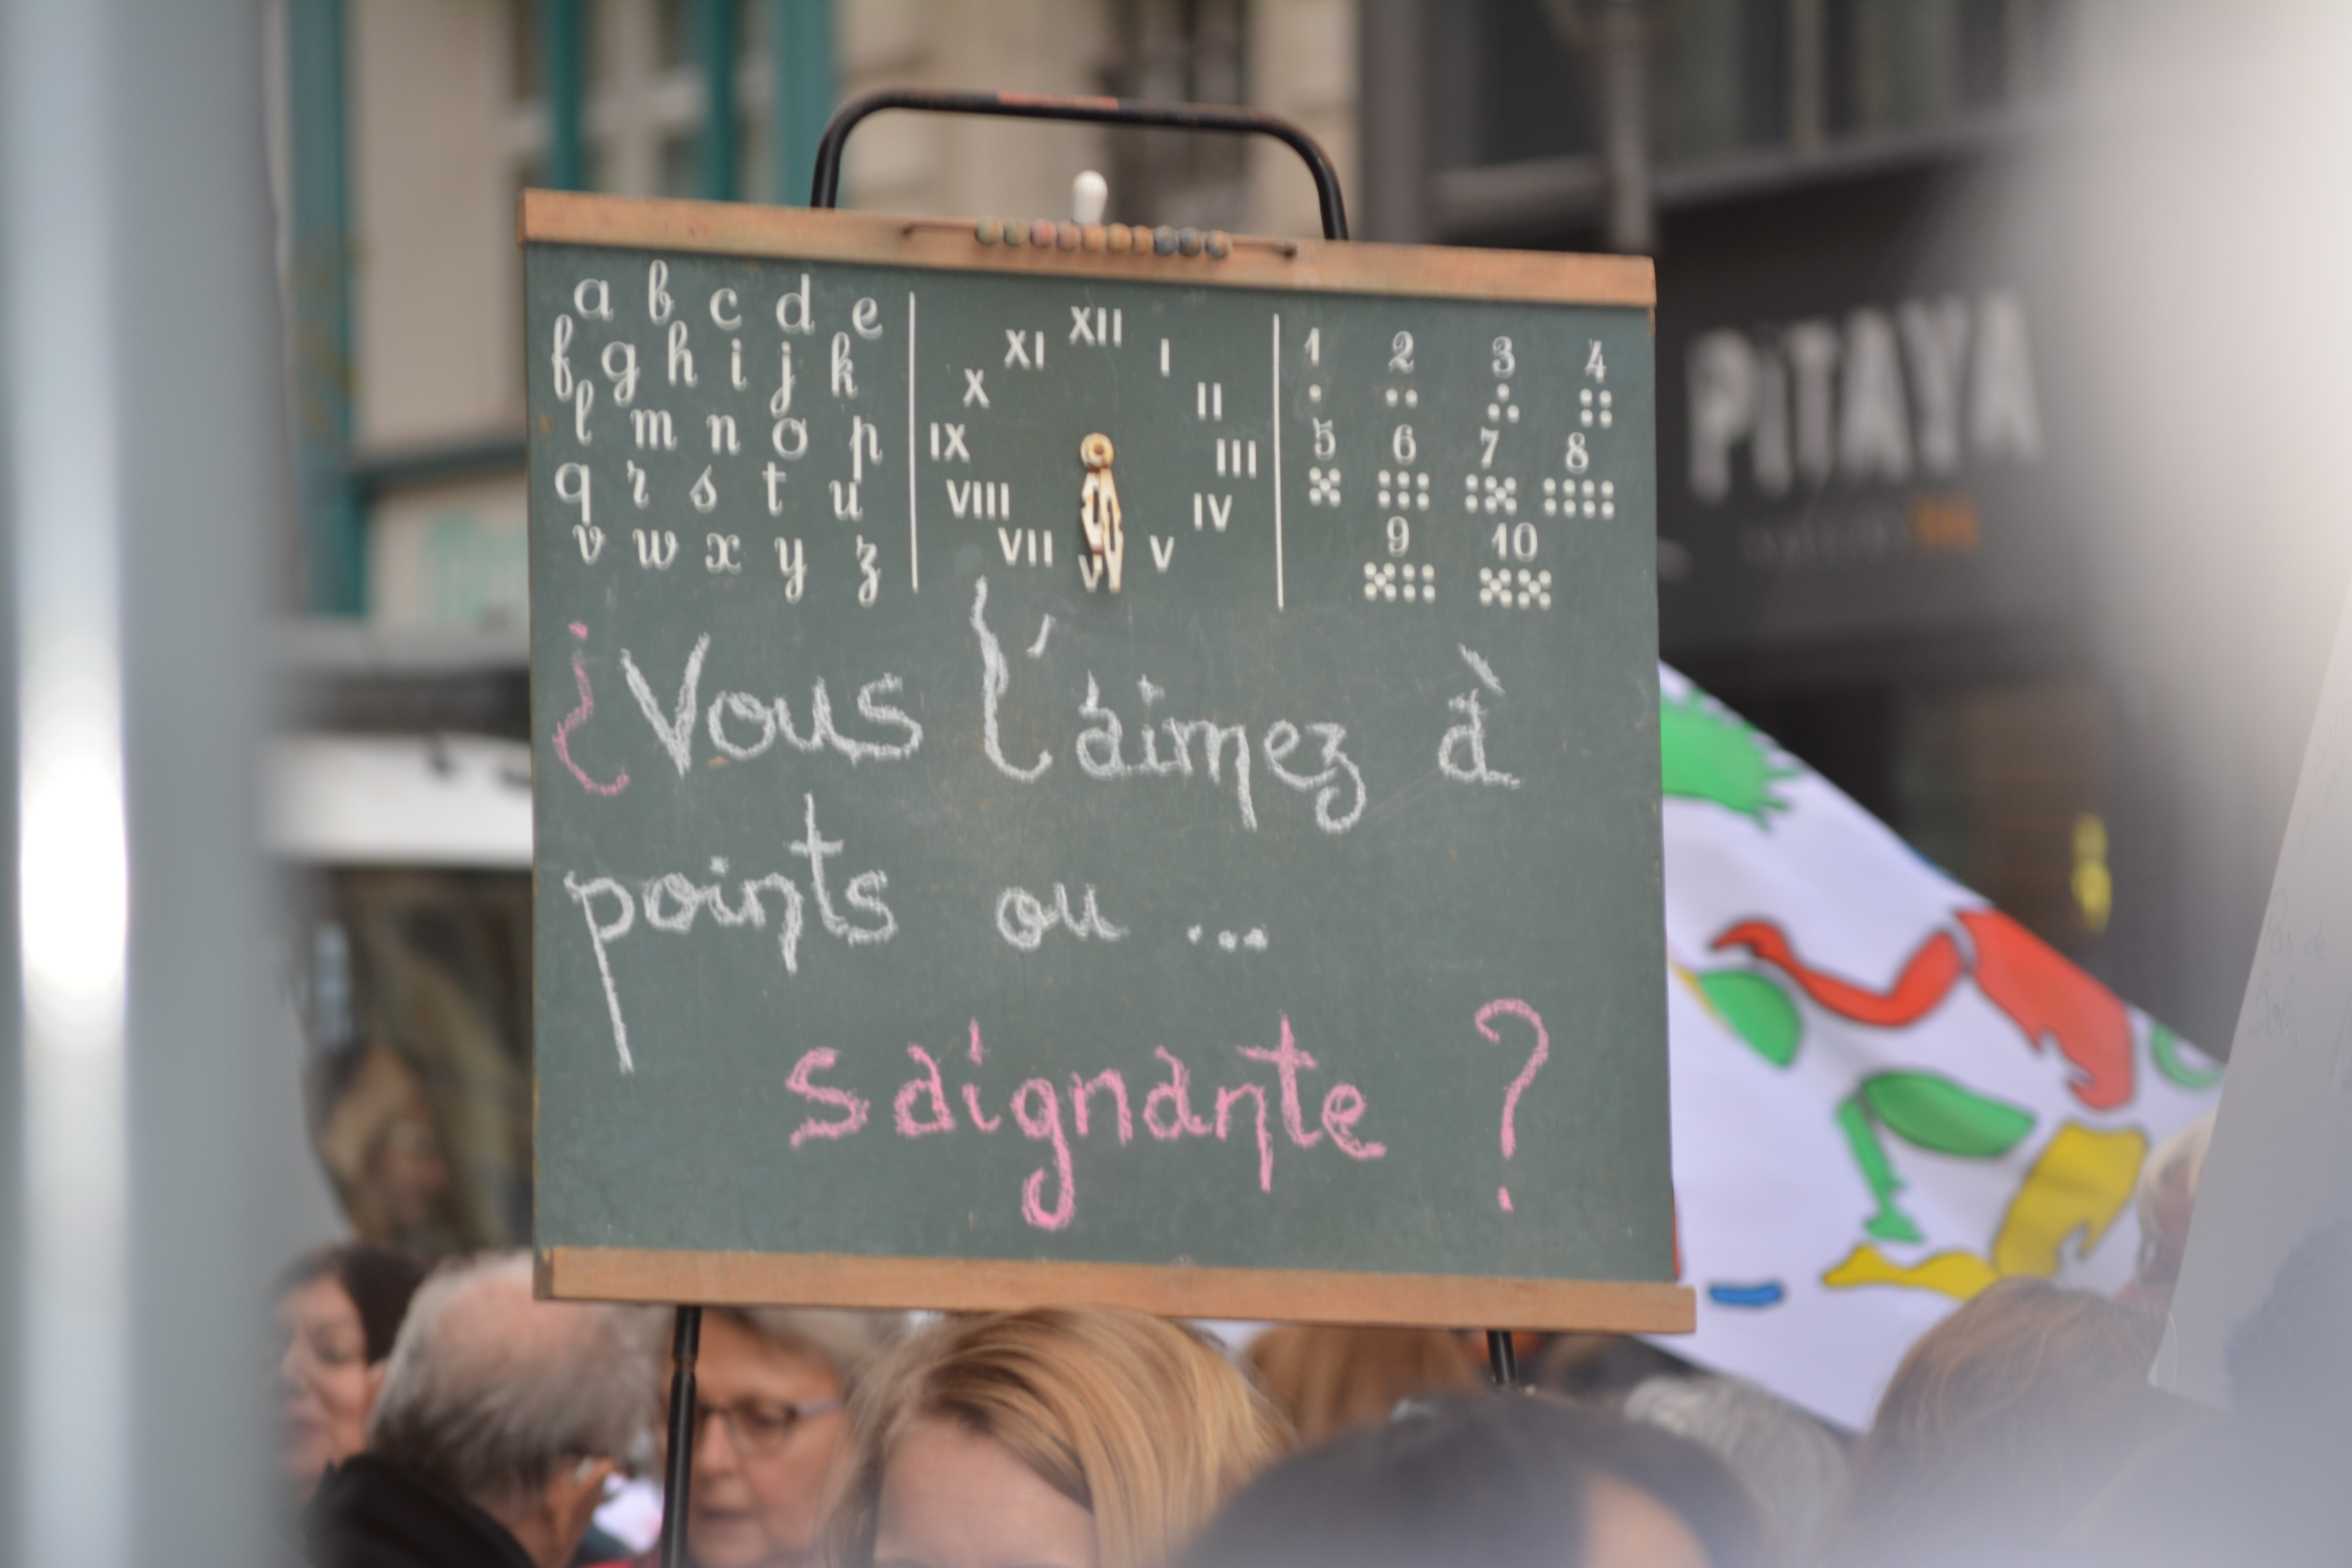 a b c d e
f g h i j k
l m n o p
q r s t u
v w x y z
XII
XI I
X II
IX III
VIII IV
VII V
VI
1 2 3 4
5 6 7 8
9 10
¿Vous l'aimez à
points ou ...
saignante ?
PITAYA